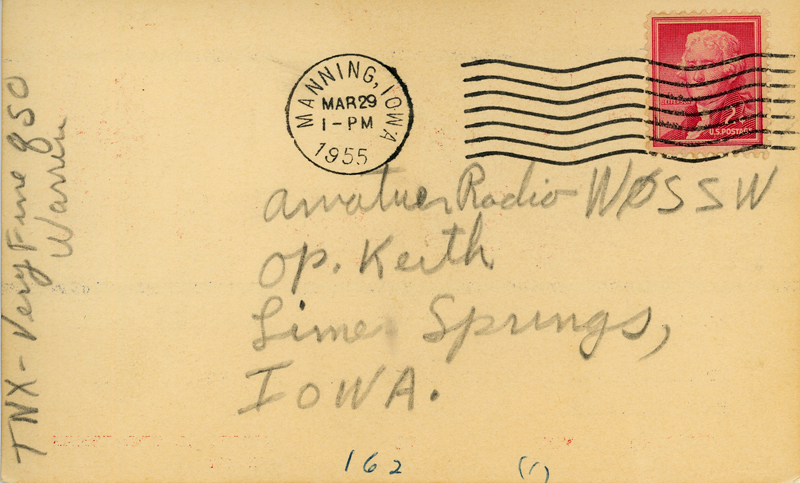 MANNING, IOWA
MAR 29
1-PM
1955
2¢
U.S. POSTAGE
amatuer Radio WØSSW
op. Keith
Lime Springs,
IOWA.
TNX - Very Fine QSO
Warren
162 (1)